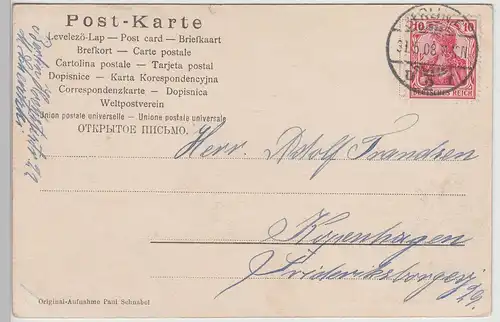 Post-Karte
Levelező-Lap — Post card — Briefkaart
Brefkort — Carte postale
Cartolina postale — Tarjeta postal
Dopisnice - Karta Korespondencyjna
Correspondenzkarte — Dopisnica
Weltpostverein
Union postale universelle - Unione postale universale
ОТКРЫТОЕ ПИСЬМО.
10 10
DEUTSCHES REICH
BERLIN
31.5.08
Herr. Adolf Frandsen
Kopenhagen
Frideriksborgervej
Berlin
Original-Aufnahme Paul Schnabel